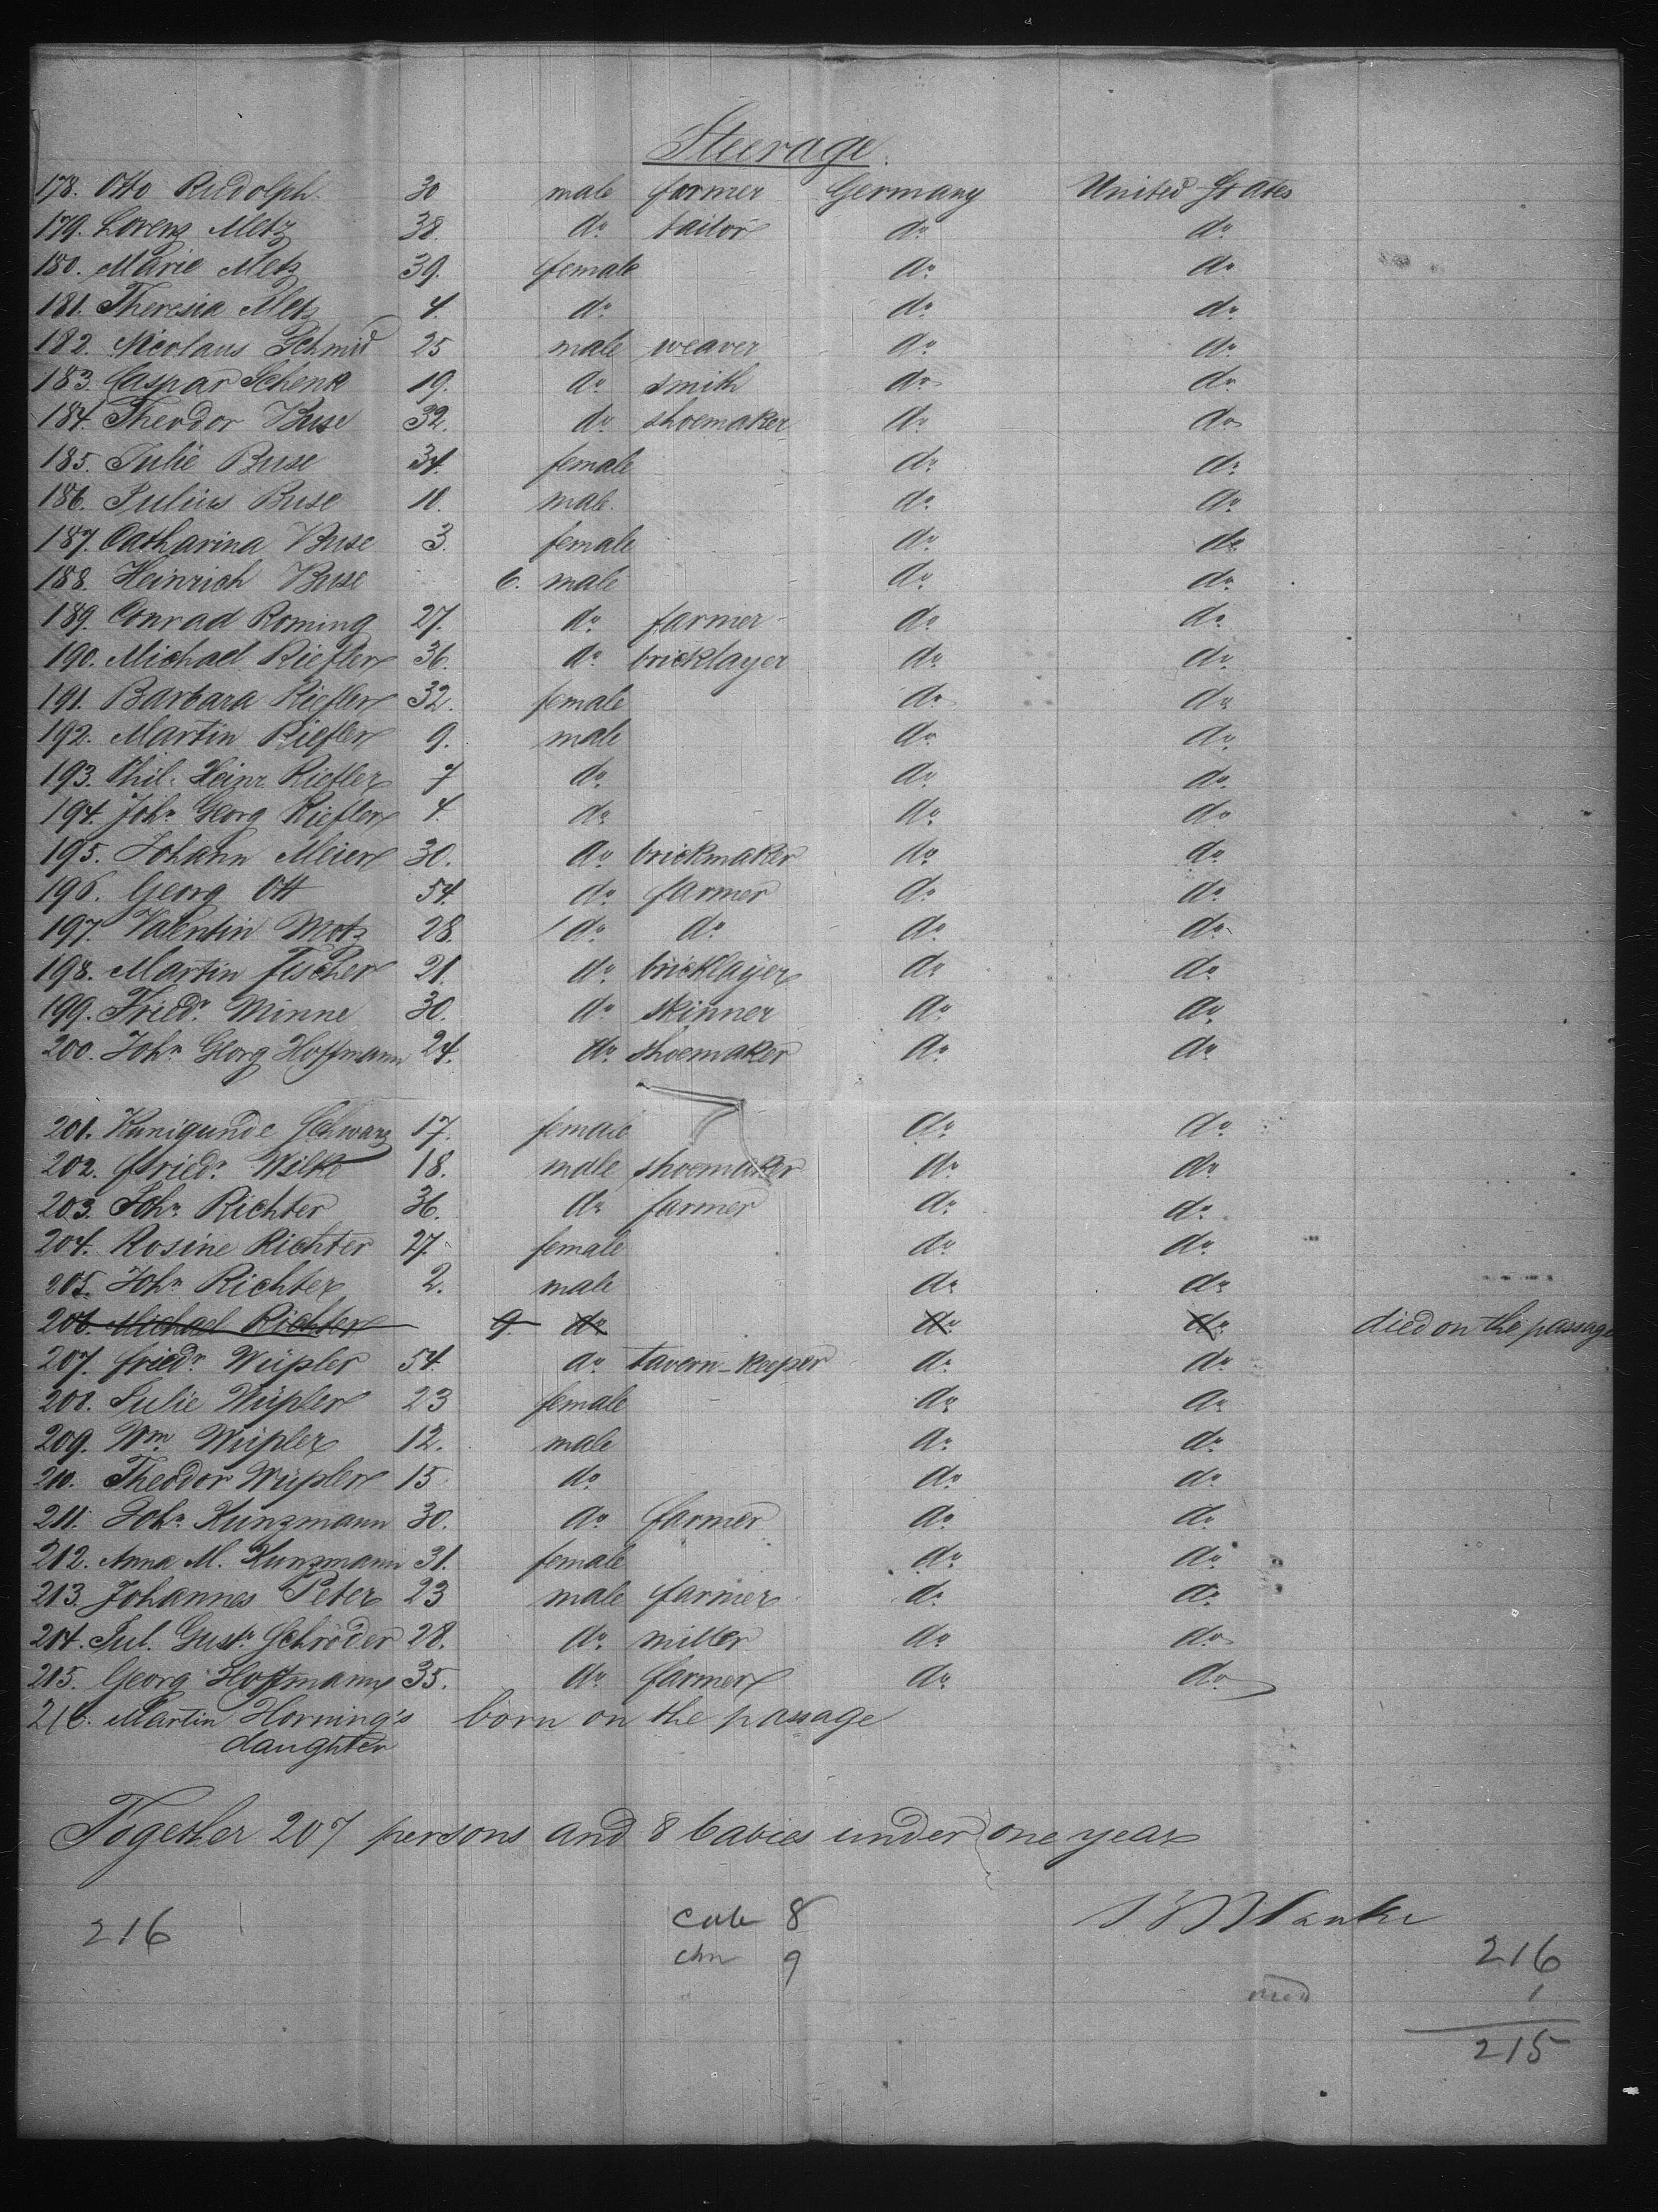 Steerage.
178. Otto Rudolph. 30 male farmer Germany United States
179. Lorenz Metz 38. do tailor do do
180. Marie Metz 39. female do do
181. Theresia Metz 4. do do do
182. Nicolaus Schmid 25 male weaver do do
183. Caspar Schenk 19. do smith do do
184. Theodor Buse 32. do shoemaker do do
185. Julie Buse 34. female do do
186. Julius Buse 11. male do do
187. Catharina Buse 3. female do do
188. Heinrich Buse 6. male do do
189. Conrad Roming 27. do farmer do do
190. Michael Riefler 36. do bricklayer do do
191. Barbara Riefler 32. female do do
192. Martin Riefler 9. male do do
193. Phil. Heinr. Riefler 7 do do do
194. John Georg Riefler 4. do do do
195. Johann Meier 30. do brickmaker do do
196. Georg Ott 54. do farmer do do
197. Valentin Motz 28. do do do do
198. Martin Fischer 21. do bricklayer do do
199. Friedr. Minne 30. do skinner do do
200. John Georg Hoffmann 24. do shoemaker do do
201. Kunigunde Schwarz 17. female do do
202. Friedr. Wilke 18. male shoemaker do do
203. John Richter 36. do farmer do do
204. Rosine Richter 27. female do do
205. John Richter 2. male do do
206. Michael Richter 9. do do do died on the passage
207. Friedr. Wüpler 54 do tavern-keeper do do
208. Julie Wüpler 23 female do do
209. Wm. Wüpler 12. male do do
210. Theodor Wüpler 15 do do do
211. John Kunzmann 30. do farmer do do
212. Anna M. Kunzmann 31. female do do
213. Johannes Peter 23 male farmer do do
214. Jul. Gust. Schröder 28. do miller do do
215. Georg Hoffmann 35. do farmer do do
216. Martin Horning's born on the passage
daughter
Together 207 persons and 8 babies under one year
216 8
9 216
1
215